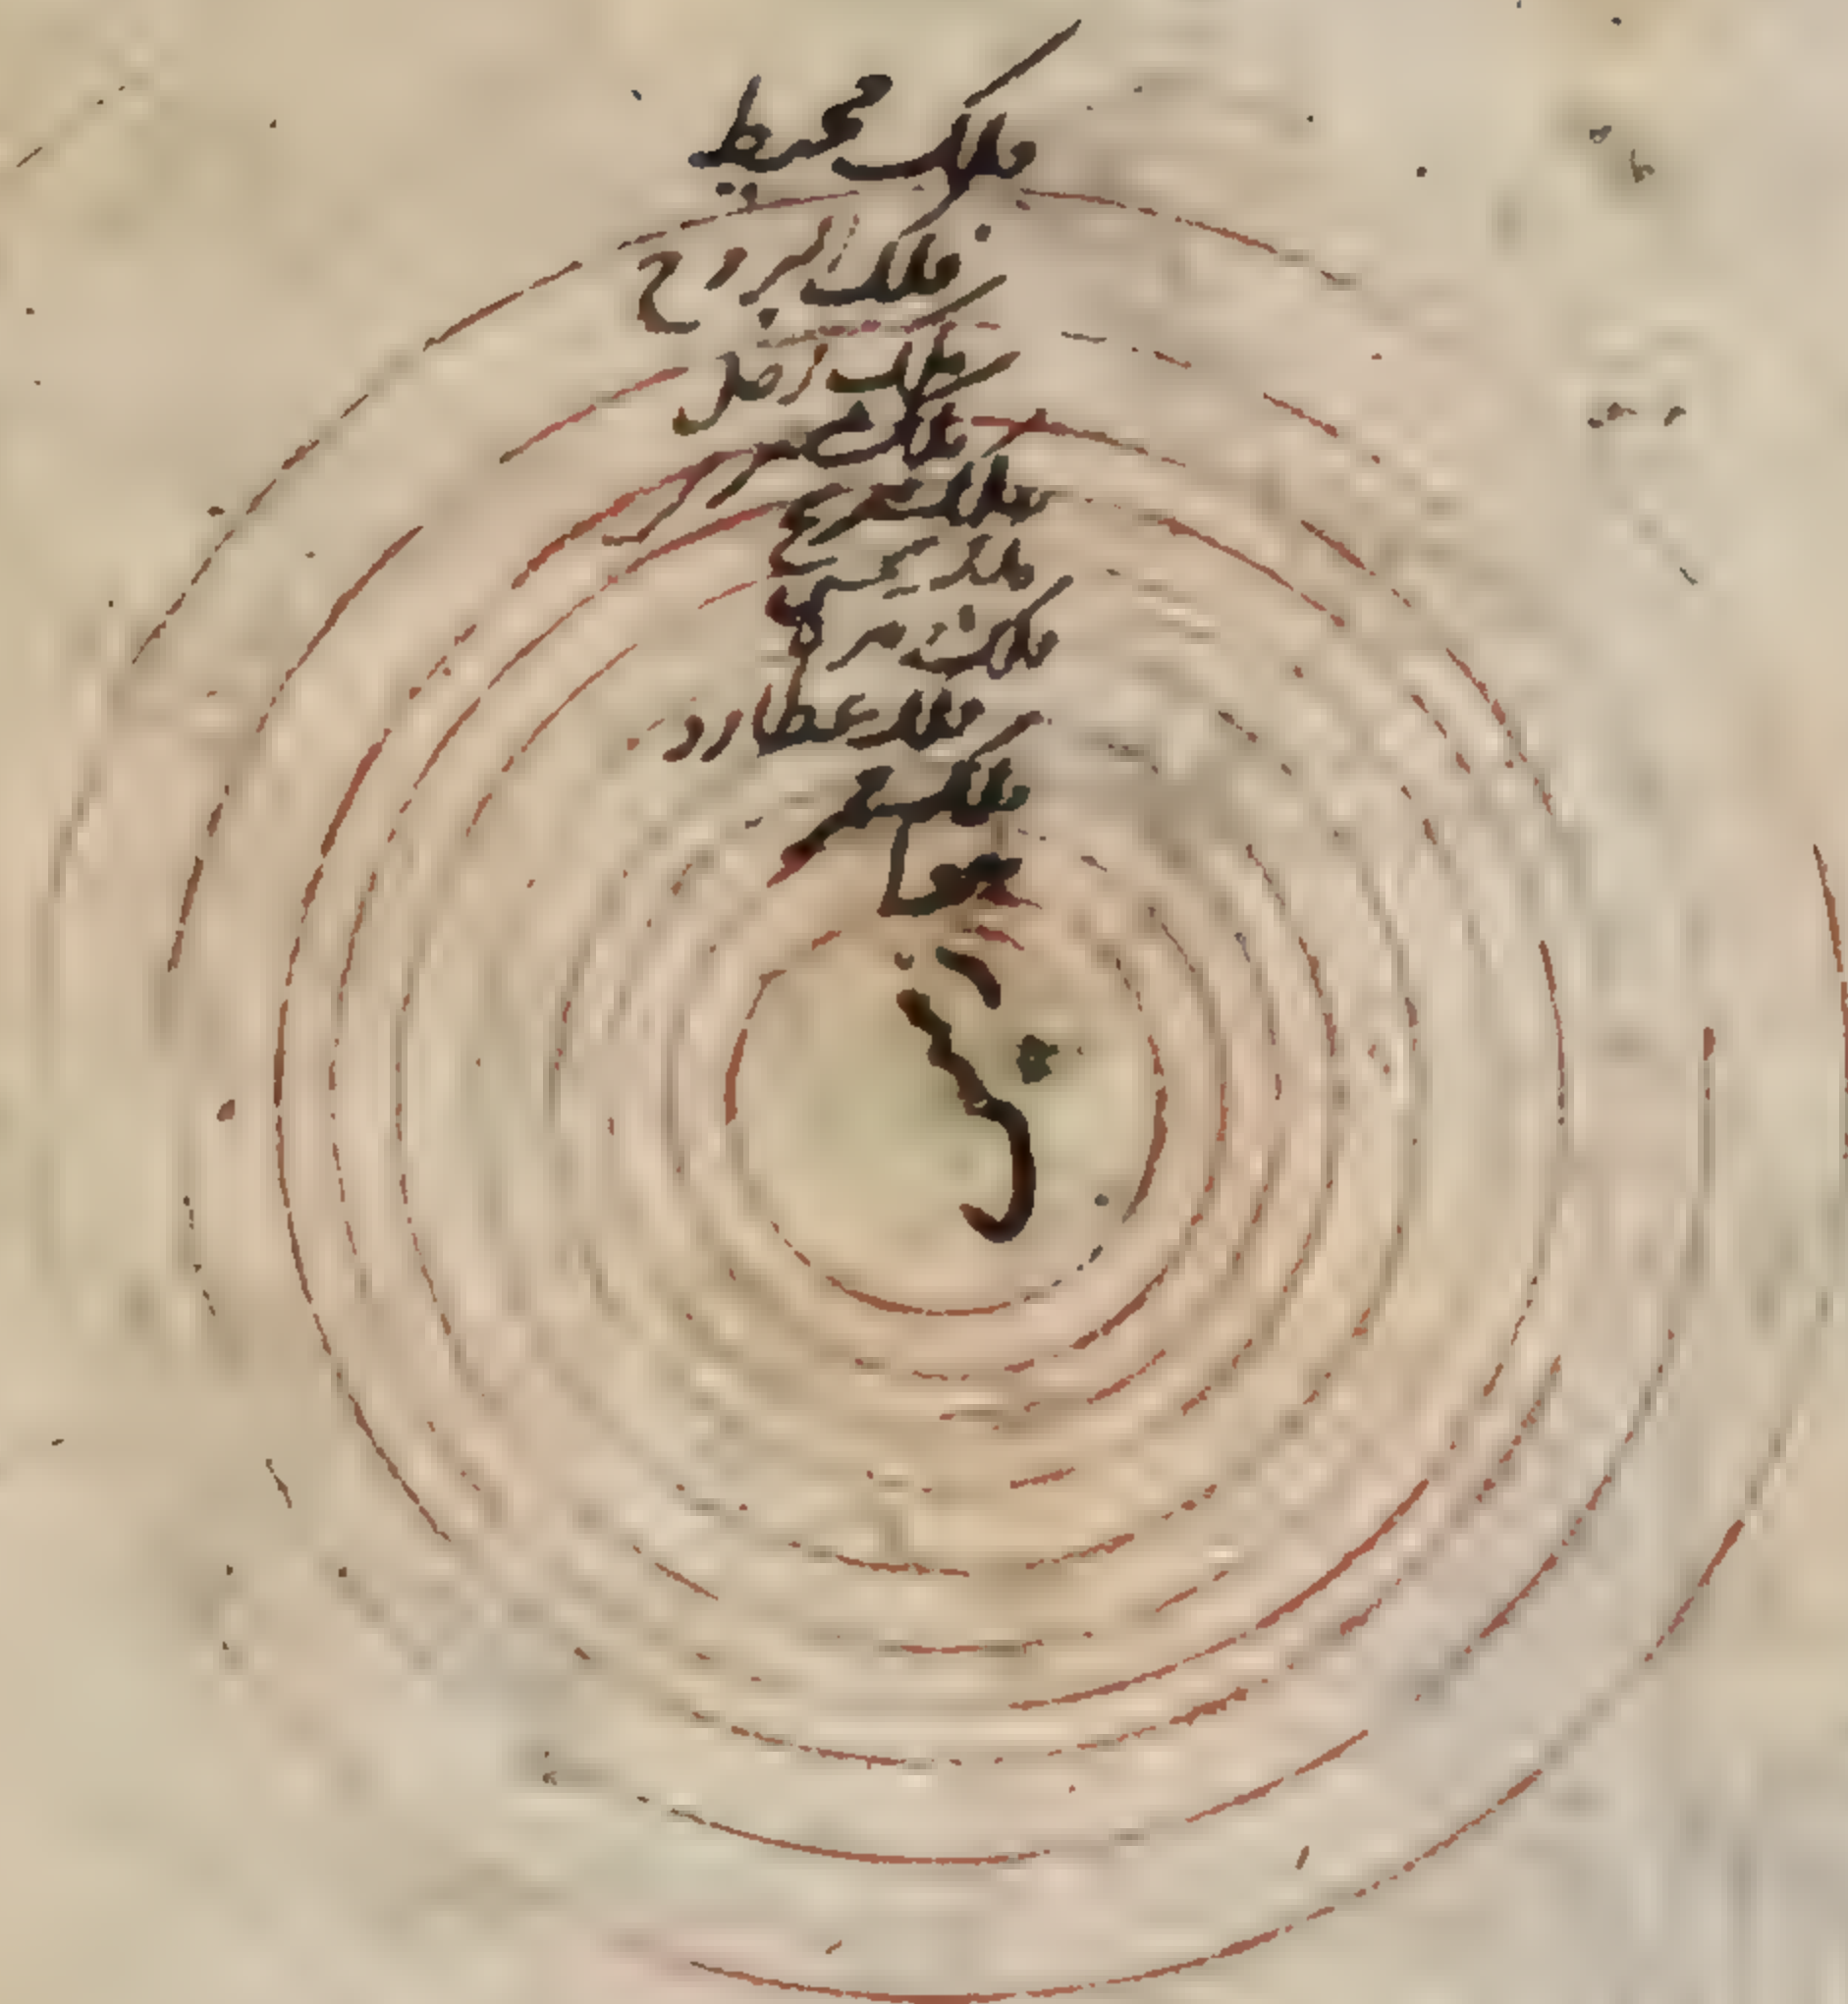 فلك محيط
فلك البروج
فلك زحل
فلك مشتري
فلك مريخ
فلك شمس
فلك زهره
فلك عطارد
فلك قمر